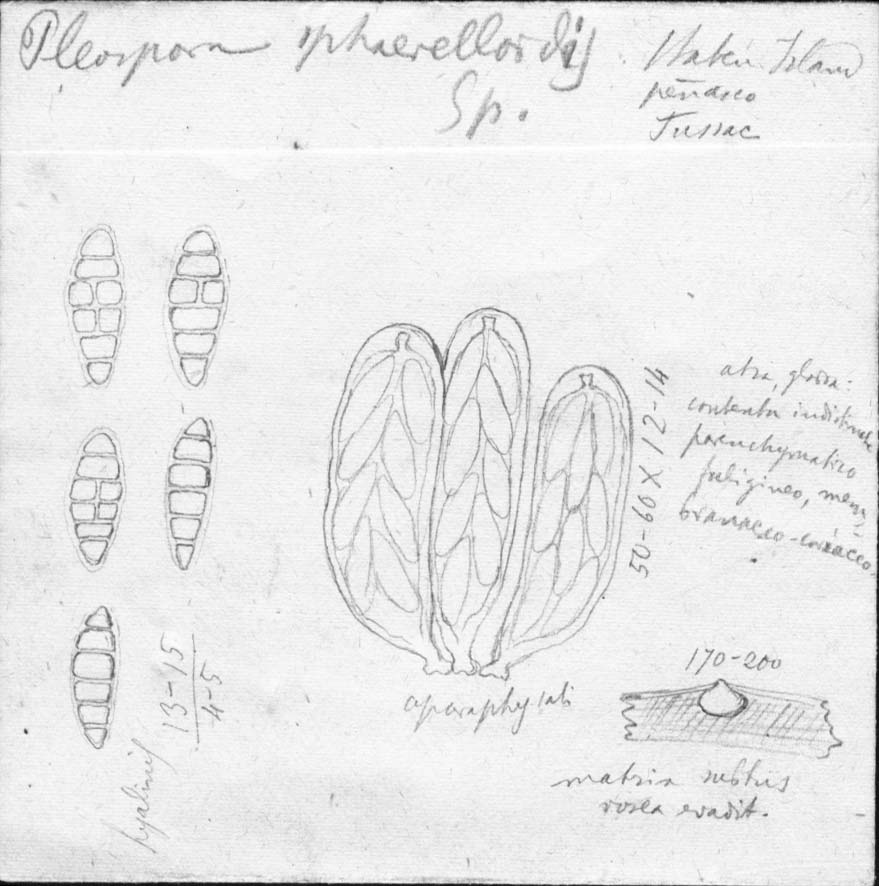 Pleospora sphaerelloidis
Sp.
Staten Island
peñasco
Tussac
50-60 X 12-14
atra, glabra:
contextu indistincte
parenchymatico
fuligineo, mem-
branaceo-coriaceo.
hyalinis
13-15
4-5
aparaphysati
170-200
matrix subtus
rosea evadit.